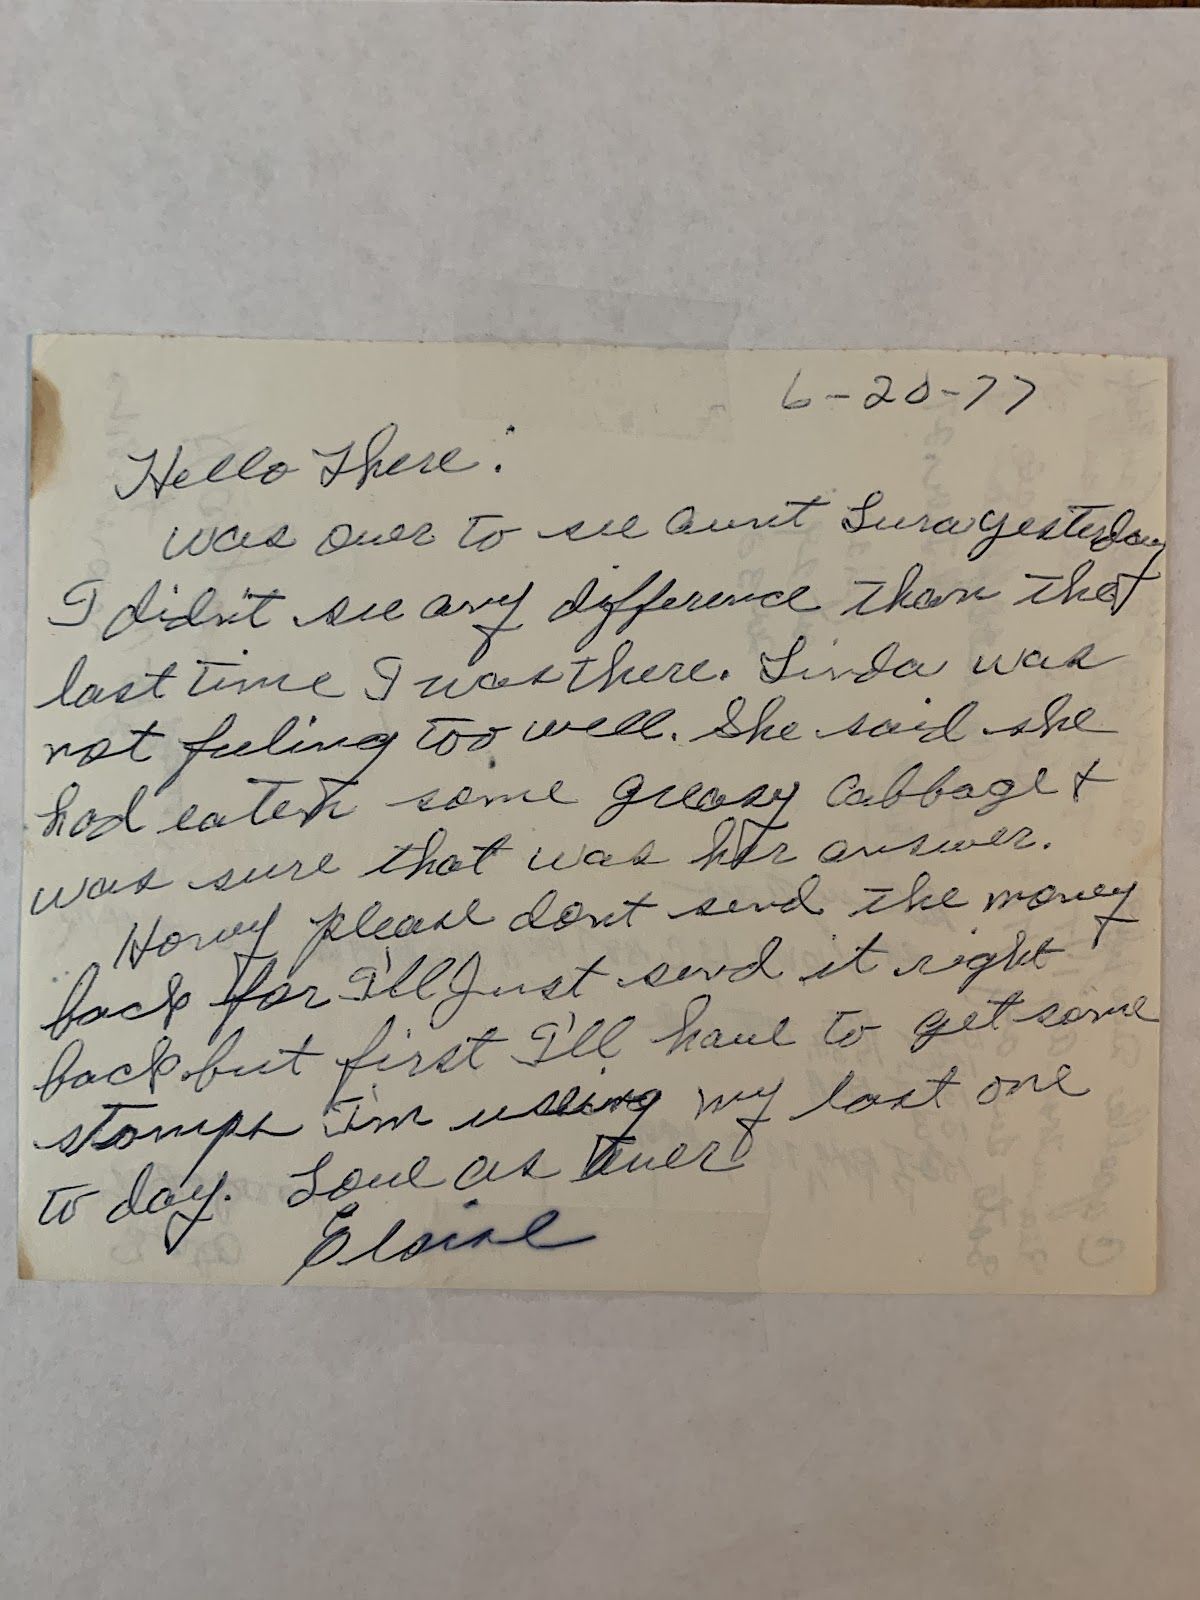 6-20-77
Hello There:
was over to see aunt Lura yesterday
I didn't see any difference than the
last time I was there. Linda was
not feeling too well. She said she
had eaten some greasy cabbage &
was sure that was her answer.
Honey please dont send the money
back for I'll Just send it right
back. but first I'll have to get some
stamps I'm using my last one
to day. Love as Ever
Eloise